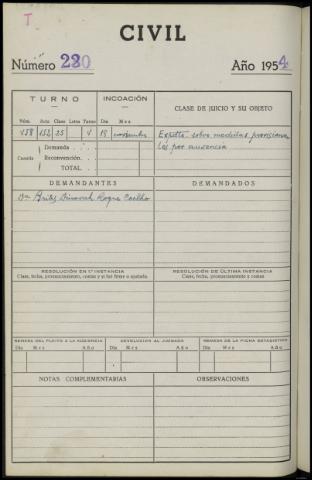 T
CIVIL
Número 220 Año 1954
TURNO INCOACIÓN CLASE DE JUICIO Y SU OBJETO
Núm. Acta Clase Letra Turno Día Mes
158 152 25 4 18 noviembre Expdte. sobre medidas provisiona
les por ausencia
Cuantía Demanda
Reconvención
TOTAL
DEMANDANTES DEMANDADOS
Roque Coelho
RESOLUCIÓN EN 1ª INSTANCIA RESOLUCIÓN DE ÚLTIMA INSTANCIA
Clase, fecha, pronunciamiento, costas y si fué firme o apelada. Clase, fecha, pronunciamiento y costas
REMESA DEL PLEITO A LA AUDIENCIA DEVOLUCIÓN AL JUZGADO REMESA DE LA FICHA ESTADÍSTICO
Día Mes Año Día Mes Año Día Mes Año
NOTAS COMPLEMENTARIAS OBSERVACIONES